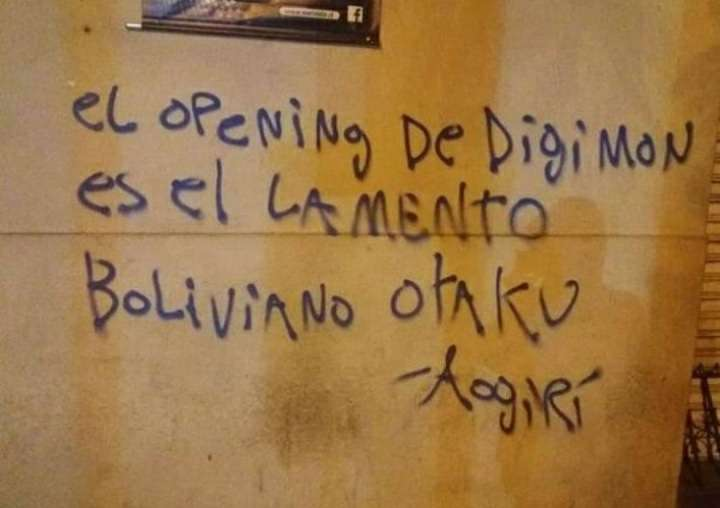 el OPeNiNg De DigiMON
es el LAMENTO
BoLiViANO OtAKU
-AogiRi-